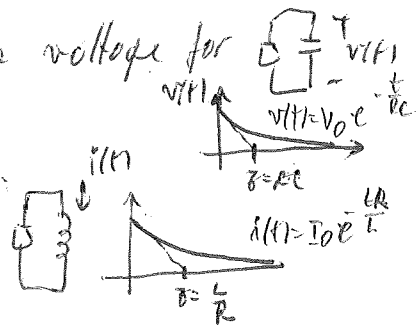 voltage for
v(t)
v(t)
v(t) = V₀ e^{-t/RC}
τ = RC
i(t)
i(t) = I₀ e^{-tR/L}
τ = L/R